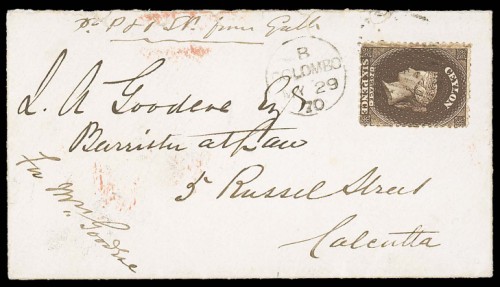 Pr P & O Str. from Galle
B
COLOMBO
MY 29
70
CEYLON
POSTAGE
SIX PENCE
L. A. Goodeve Esq
Barrister at Law
5 Russel Street
Calcutta
For Mrs. Goodeve